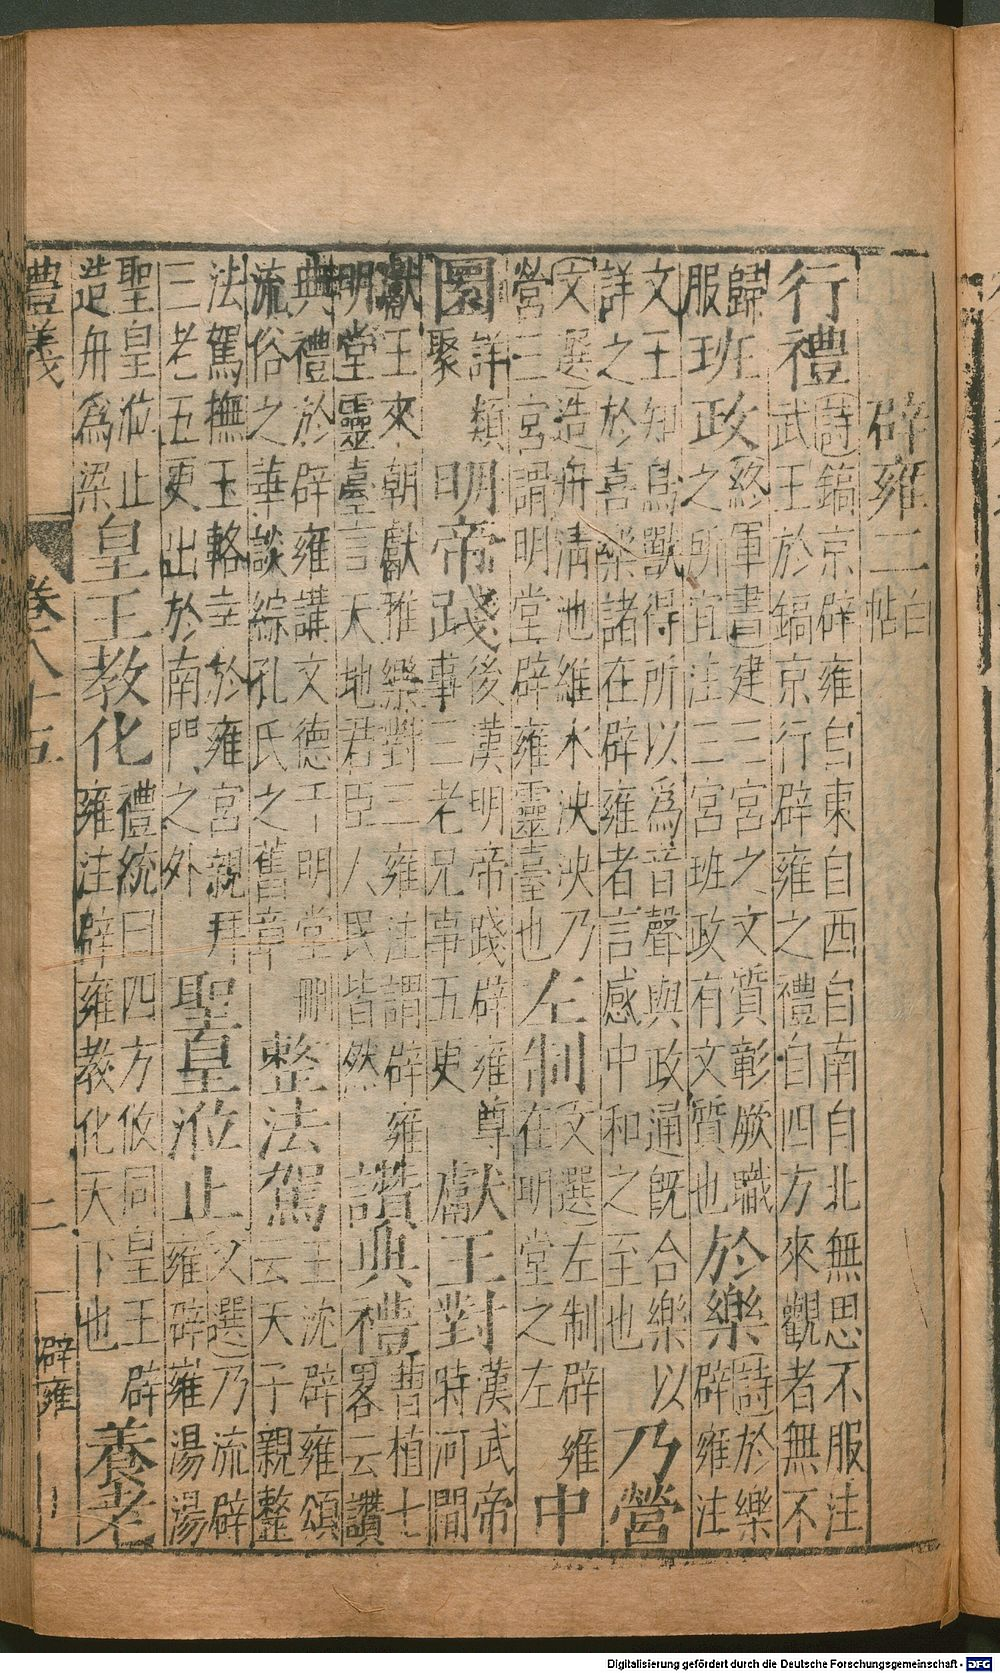 辟雍二 白
帖
行禮
詩鎬京辟雍自東自西自南自北無思不服注
武王於鎬京行辟雍之禮自四方來觀者無不
歸
服
班政
終軍書建三宮之文質彰厥職
之所宜注三宮班政有文質也
於樂
詩於樂
辟雍注
文王知鳥獸得所以爲音聲與政通旣合樂以
詳之於喜樂諸在辟雍者言感中和之至也
乃營
文選造舟清池維水泱泱乃
營三宮謂明堂辟雍靈臺也
左制
文選左制辟雍
在明堂之左
中
圜
詳類
聚
明帝踐
後漢明帝踐辟雍尊
事三老兄事五吏
獻王對
漢武帝
特河間
獻王來朝獻雅樂對三雍注謂辟雍
明堂靈臺言天地君臣人民皆然
讚典禮
曹植七
畧云讚
典禮於辟雍講文德于明堂刪
流俗之華談綜孔氏之舊章
整法駕
王沈辟雍頌
云天子親整
法駕撫玉輅幸於雍宮親拜
三老五更出於南門之外
聖皇涖止
文選乃流辟
雍辟雍湯湯
聖皇涖止
造舟爲梁
皇王教化
禮統曰四方攸同皇王辟
雍注辟雍教化天下也
養老
豊義 卷八十五 二 辟雍
Digitalisierung gefördert durch die Deutsche Forschungsgemeinschaft - DFG